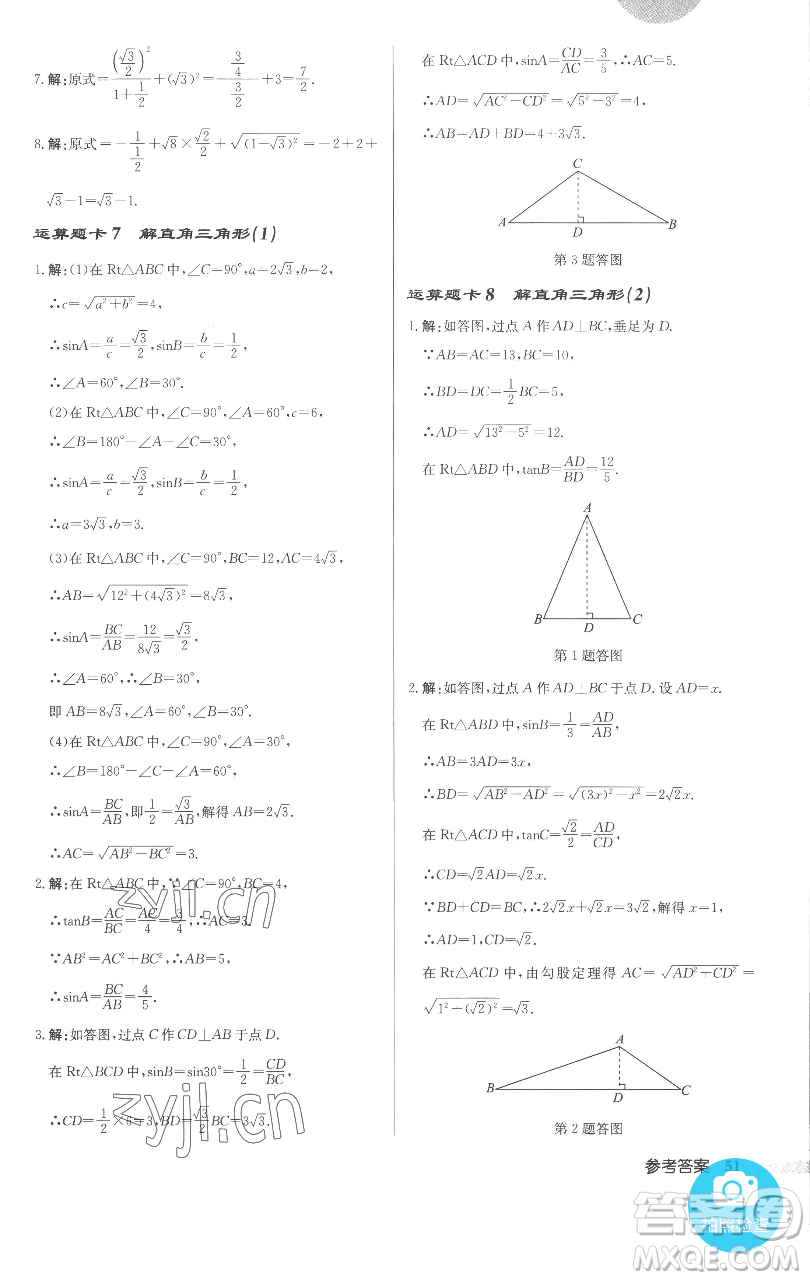 7.解:原式=(√3/2)²/(1+1/2)+(√3)²=(3/4)/(3/2)+3=7/2.
8.解:原式=-1/(1/2)+√8×√2/2+√((1-√3)²)=-2+2+
√3-1=√3-1.
运算题卡7 解直角三角形(1)
1.解:(1)在Rt△ABC中,∠C=90°,a=2√3,b=2,
∴c=√(a²+b²)=4,
∴sinA=a/c=√3/2,sinB=b/c=1/2,
∴∠A=60°,∠B=30°.
(2)在Rt△ABC中,∠C=90°,∠A=60°,c=6,
∴∠B=180°-∠A-∠C=30°.
∴sinA=a/c=√3/2,sinB=b/c=1/2,
∴a=3√3,b=3.
(3)在Rt△ABC中,∠C=90°,BC=12,AC=4√3,
∴AB=√(12²+(4√3)²)=8√3,
∴sinA=BC/AB=12/(8√3)=√3/2,
∴∠A=60°,∴∠B=30°.
即AB=8√3,∠A=60°,∠B=30°.
(4)在Rt△ABC中,∠C=90°,∠A=30°,
∴∠B=180°-∠C-∠A=60°,
∴sinA=BC/AB,即1/2=√3/AB,解得AB=2√3.
∴AC=√(AB²-BC²)=3.
2.解:在Rt△ABC中,∵∠C=90°,BC=4,
∴tanB=AC/BC=AC/4=3/4,∴AC=3.
∵AB²=AC²+BC²,∴AB=5,
∴sinA=BC/AB=4/5.
3.解:如答图,过点C作CD⊥AB于点D.
在Rt△BCD中,sinB=sin30°=1/2=CD/BC,
∴CD=1/2×6=3,BD=√3/2BC=3√3.
在Rt△ACD中,sinA=CD/AC=3/5,∴AC=5.
∴AD=√(AC²-CD²)=√(5²-3²)=4,
∴AB=AD+BD=4+3√3.
C
A
D
B
第3题答图
运算题卡8 解直角三角形(2)
1.解:如答图,过点A作AD⊥BC,垂足为D.
∵AB=AC=13,BC=10,
∴BD=DC=1/2BC=5,
∴AD=√(13²-5²)=12.
在Rt△ABD中,tanB=AD/BD=12/5.
A
B
D
C
第1题答图
2.解:如答图,过点A作AD⊥BC于点D.设AD=x.
在Rt△ABD中,sinB=1/3=AD/AB,
∴AB=3AD=3x,
∴BD=√(AB²-AD²)=√((3x)²-x²)=2√2x.
在Rt△ACD中,tanC=√2/2=AD/CD,
∴CD=√2AD=√2x.
∵BD+CD=BC,∴2√2x+√2x=3√2,解得x=1,
∴AD=1,CD=√2.
在Rt△ACD中,由勾股定理得AC=√(AD²+CD²)=
√(1²+(√2)²)=√3.
A
B
D
C
第2题答图
参考答案 51
zyjl.cn
zyjl.cn
答案卷
拍照检查
MXQE.COM